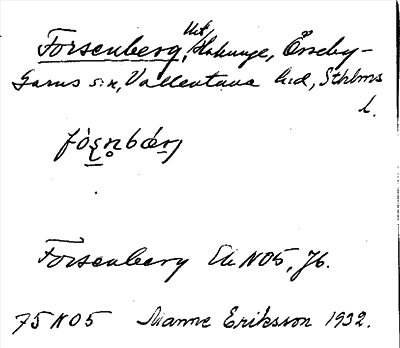 Forsenberg, Utf, Hakunge, Össeby-
Garns s:n, Vallentuna h:d, Sthlms
l.
Forsenberg Ek NO5, Jb.
75 NO5 Manne Eriksson 1932.